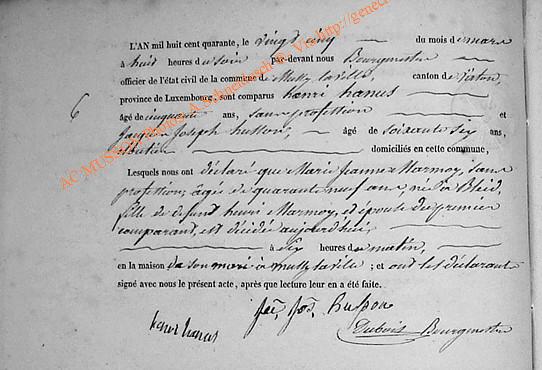 L'AN mil huit cent quarante, le vingt cinq du mois de mars
à huit heures du soir par-devant nous Bourgmestre
officier de l'état civil de la commune de Mussy la ville, canton de Virton,
province de Luxembourg, sont comparus henri hanus
6 âgé de cinquante ans, sans profession et
Jacques Joseph husson, âgé de soixante six ans,
domiciliés en cette commune,
Lesquels nous ont déclaré que Marie Jeanne Marmoy, sans
profession, âgée de quarante neuf ans, née à Bleid,
fille de défunt henri Marmoy, et épouse du premier
comparant, est décédée aujourd'hui,
à six heures du matin,
en la maison de son mari à mussy la ville; et ont les déclarants
signé avec nous le présent acte, après que lecture leur en a été faite.
Jos. husson
hanus
Dubois Bourgmestre
AC-MUSSON Photos A. Schneidesch © Via http://genecr